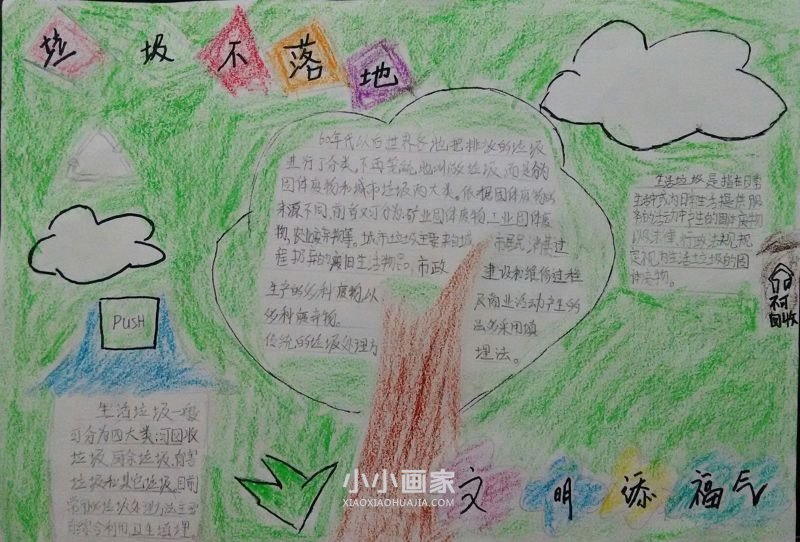 垃圾不落地
60年代以后世界各地把排放的垃圾
进行了分类,不再笼统地叫做垃圾,而是分为
固体废物和城市垃圾两大类。依根固体废物的
来源不同,前者又可分为矿业固体废物,工业固体废
物,农业废弃物等。城市垃圾主要来自城市居民消费过
程扔弃的废旧生活物品,市政建设和维修过程
生产的各种废物,以及商业活动产生的
各种废弃物。
传统的垃圾处理方法多采用填
埋法。
生活垃圾是指在日常
生活中或为日常生活提供服
务的活动中产生的固体废物
以及法律,行政法规规
定视为生活垃圾的固
体废物。
不可
回收
PUSH
生活垃圾一般
可分为四大类:可回收
垃圾,厨余垃圾,有害
垃圾和其它垃圾。目前
常用的垃圾处理方法主要
有综合利用,卫生填埋
文明添福气
小小画家
XIAOXIAOHUAJIA.COM